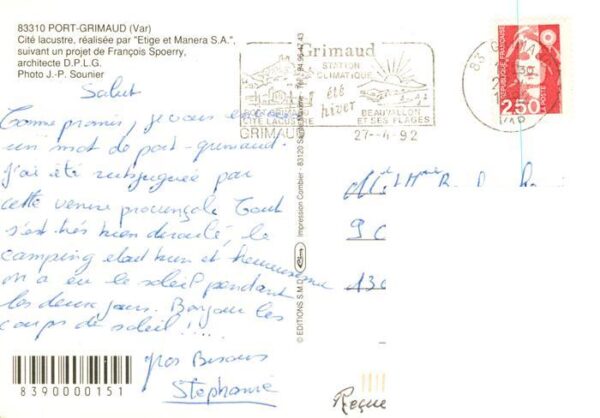 83310 PORT-GRIMAUD (Var)
Cité lacustre, réalisée par "Etige et Manera S.A.",
suivant un projet de François Spoerry,
architecte D.P.L.G.
Photo J.-P. Sounier
Salut
Comme promis, je vous envoie
un mot de port-grimaud.
J'ai été subjuguée par
cette venise provençale Tout
s'est très bien déroulé, le
camping était bien et heureusement
on a eu le soleil pendant
les deux jours. Bonjour les
coups de soleil !...
Gros Bisous
Stephanie
8390000151
© EDITIONS S.M.D. Impression Combier 83120 Tél. 94.96.43
Grimaud
STATION
CLIMATIQUE
été
hiver
CITÉ LACUSTRE
GRIMAUD
BEAUVALLON
ET SES PLAGES
27-4-92
83
VAR
REPUBLIQUE FRANÇAISE
2,50
LA POSTE
Mr et Mme R.
9 C
130
Reçue